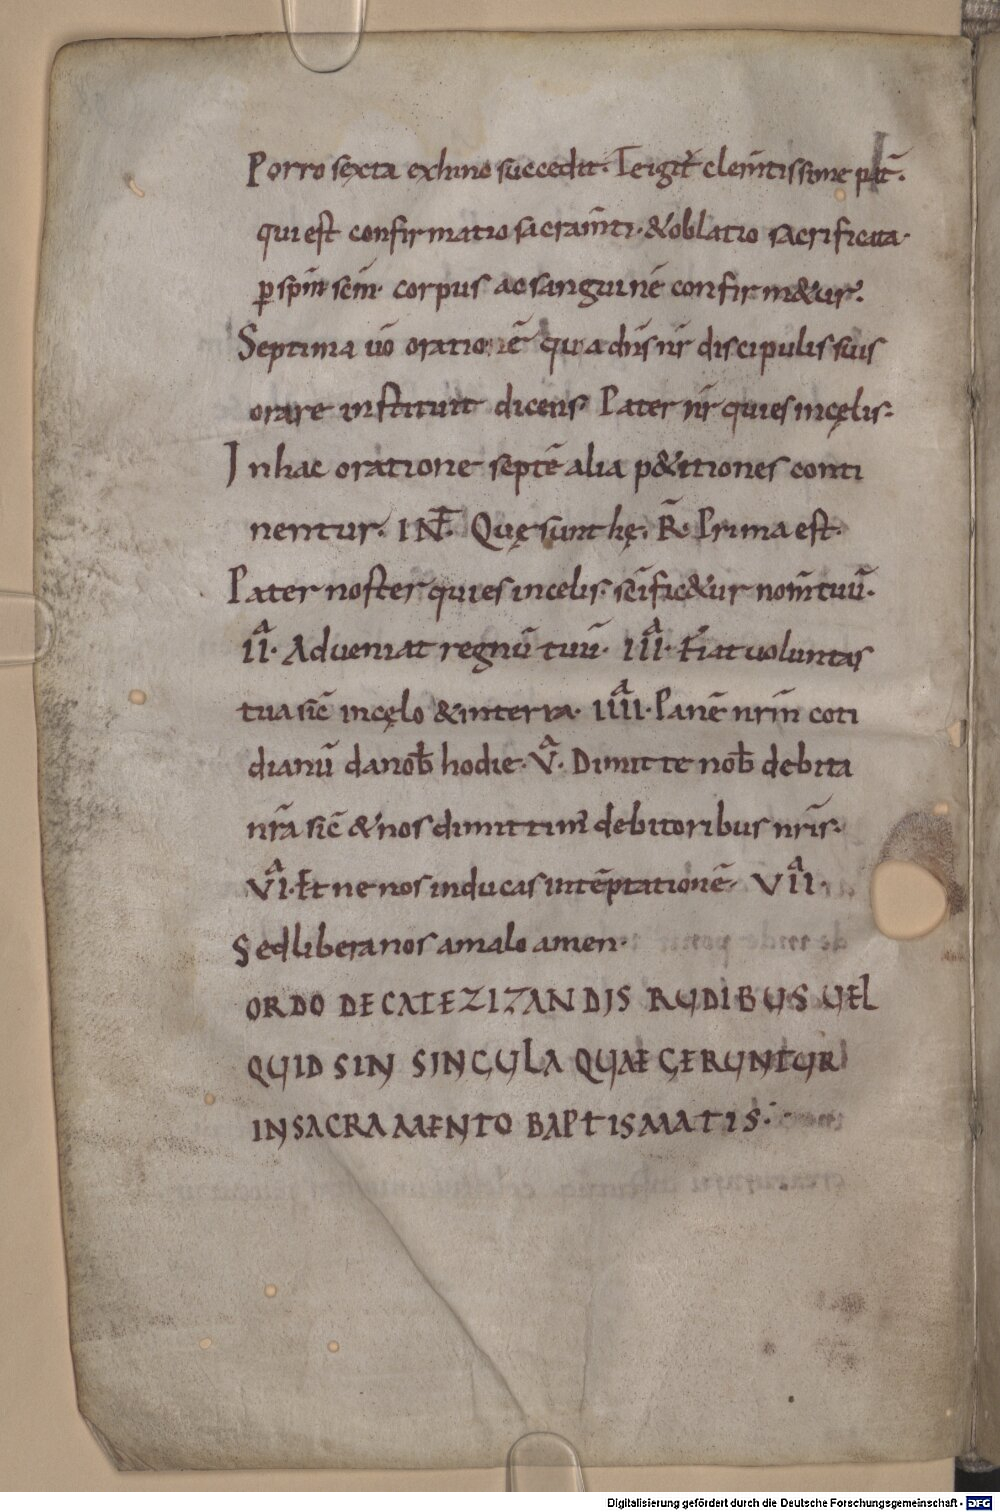 Porro sexta exhinc succedit. Te igit̄ clem̄tissime pat̄.
qui est confirmatio sacram̄ti. & oblatio sacrificata.
ꝑ spm̄ scm̄. corpus ac sanguinē confirm&ur.
Septima ūo orationē qua dn̄s nr̄ discipulis suis
orare instituit dicens. Pater nr̄ qui es in cęlis.
In hac oratione septē alia p&itiones conti
nentur. INT̄. Quę sunt hę. R̄. Prima est.
Pater noster qui es in celis. sc̄ific&ur nom̄ tuū.
IIᵃ. Adueniat regnū tuū. IIIᵃ. Fiat uoluntas
tua sic̄ in cęlo & in terra. IIIIᵃ. Panē nrm̄ coti
dianū da nob̄ hodie. Vᵃ. Dimitte nob̄ debita
nr̄a sic̄ & nos dimittim᾿ debitoribus nr̄is.
VIᵃ. Et ne nos inducas in tēptationē. VIIᵃ.
Sed libera nos a malo amen.
ORDO DE CATEZIZANDIS RUDIBUS UEL
QUID SIN SINGULA QUAE GERUNTUR
IN SACRAMENTO BAPTISMATIS.
Digitalisierung gefördert durch die Deutsche Forschungsgemeinschaft - DFG